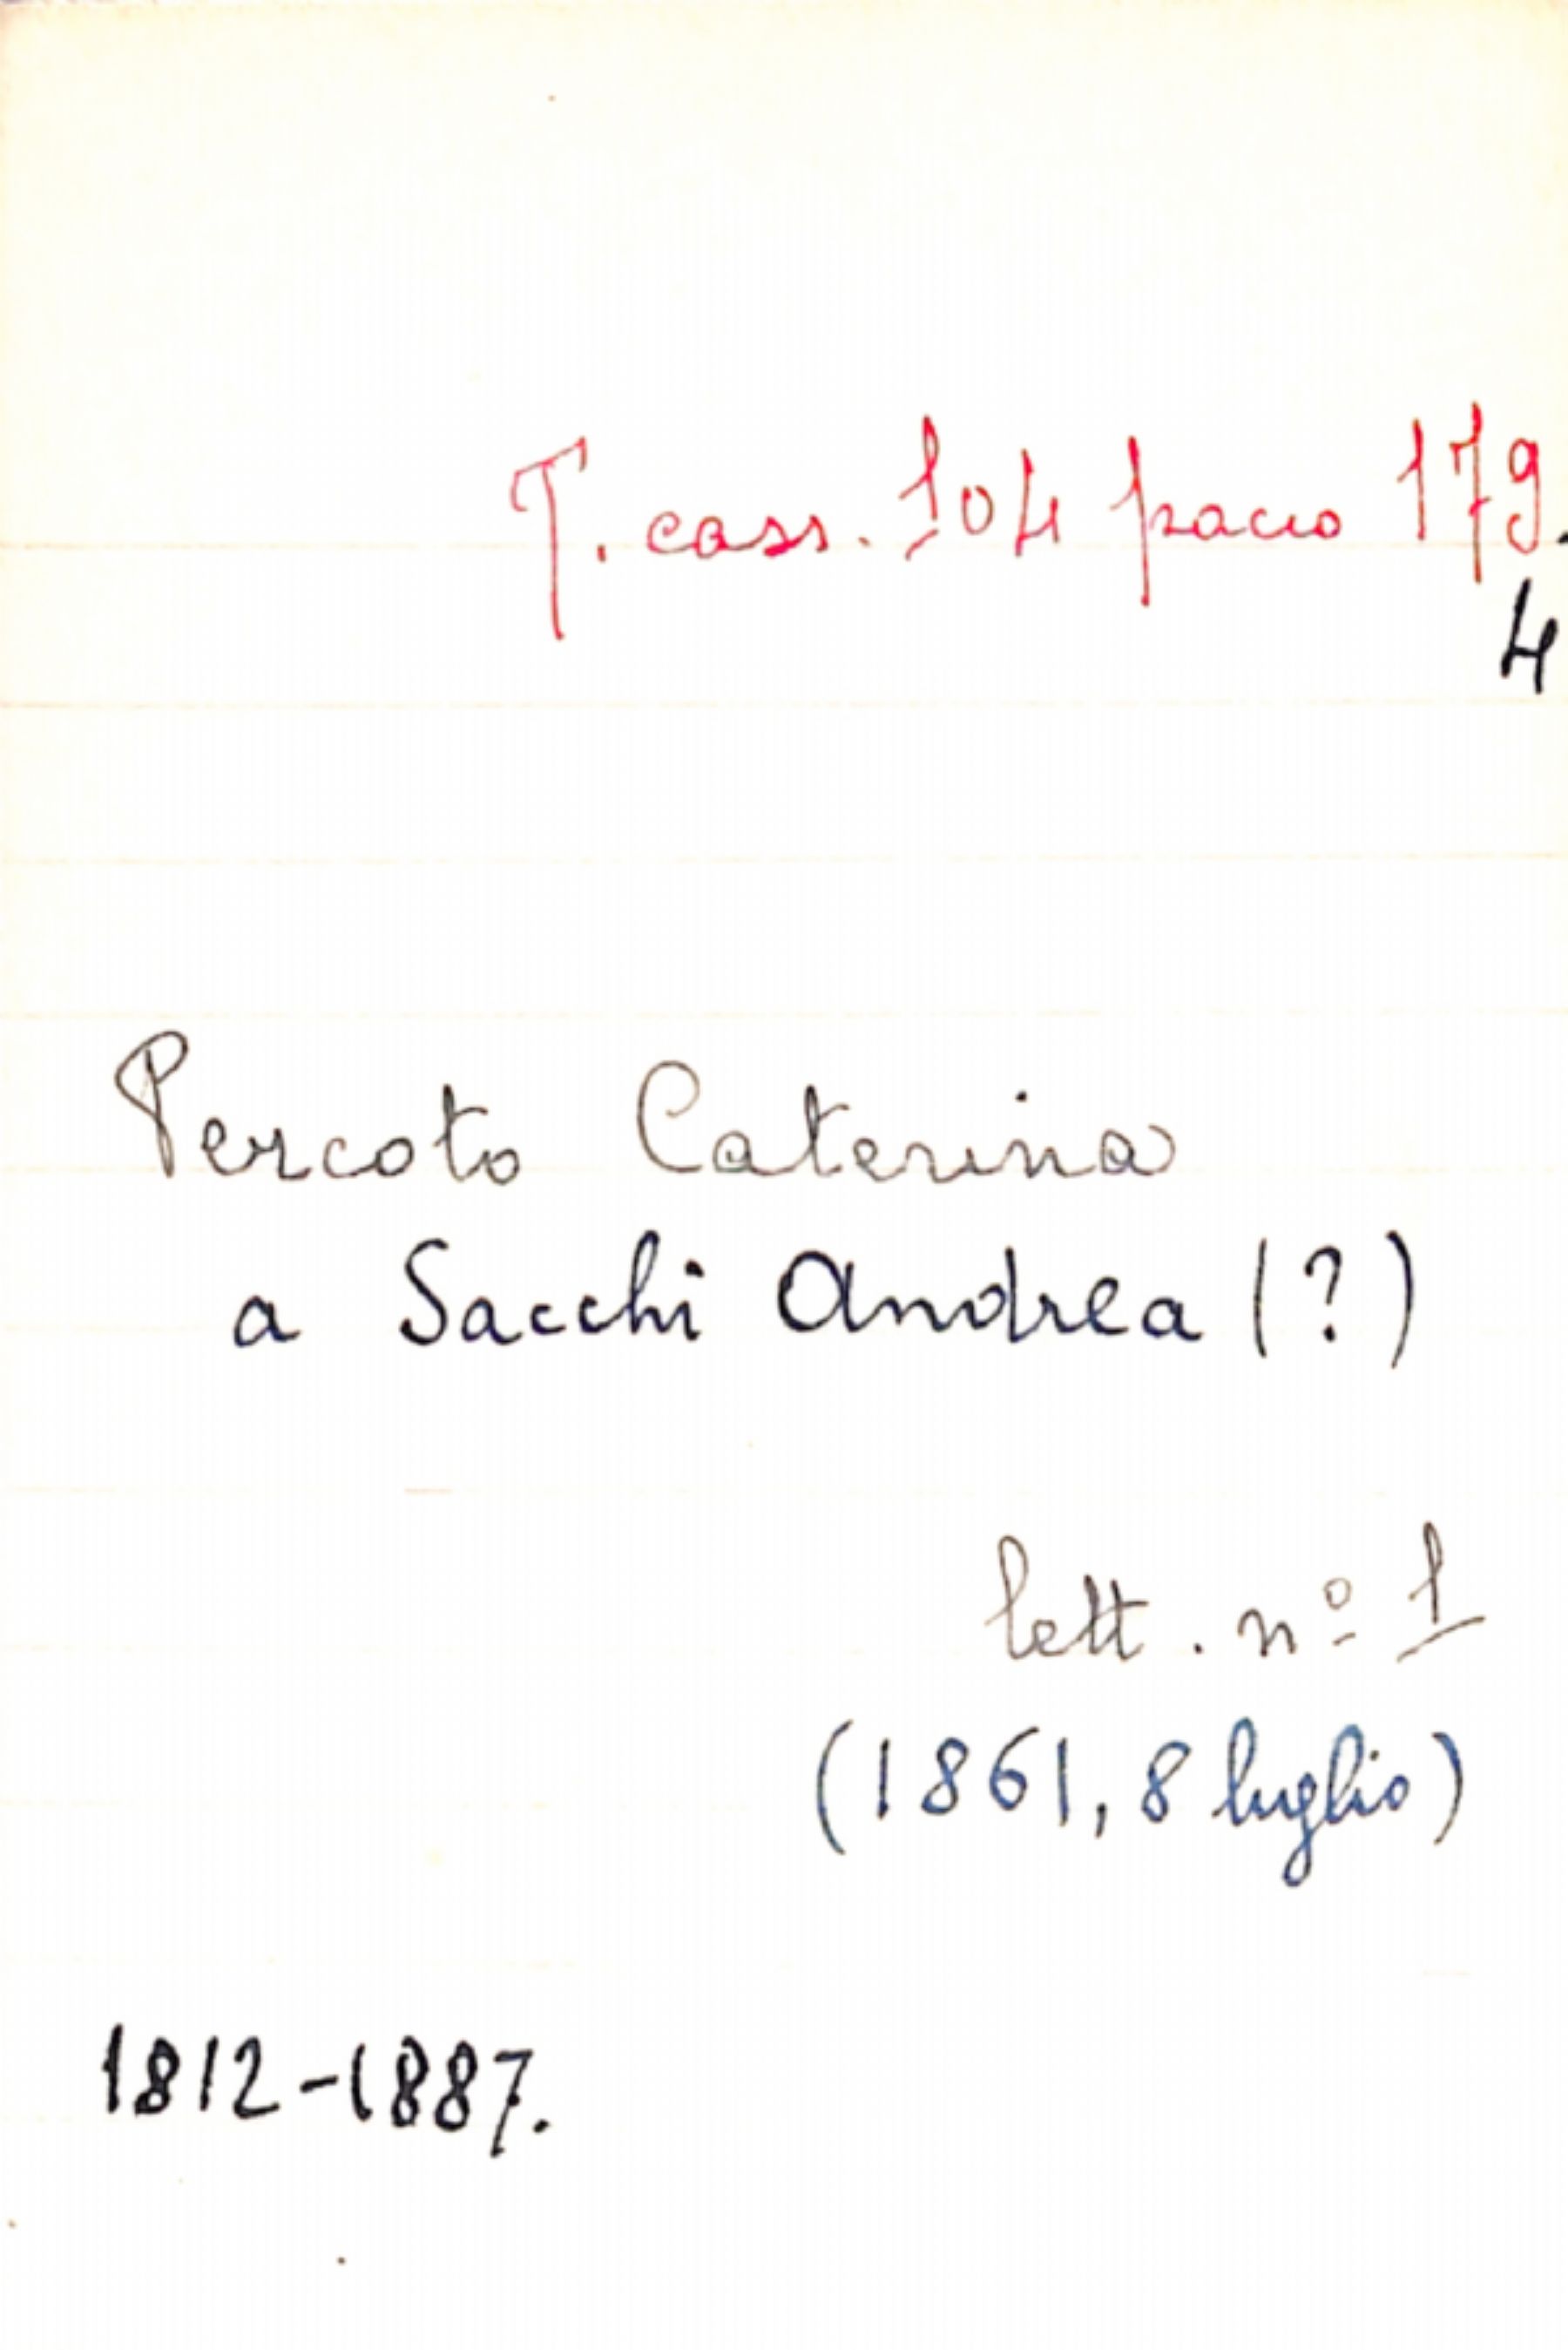 T. cass. 104 pacco 179.
4
Percoto Caterina
a Sacchi Andrea (?)
lett. nº 1
(1861, 8 luglio)
1812-1887.